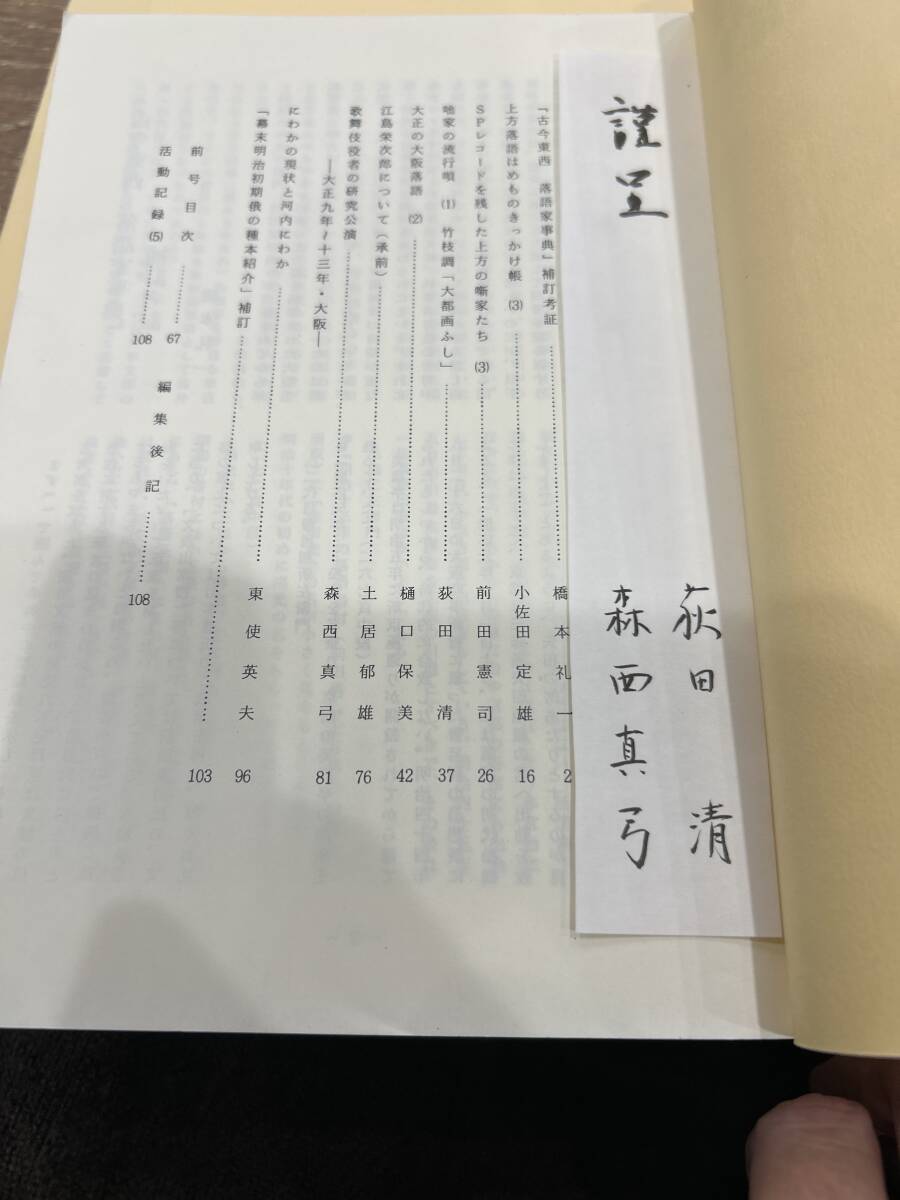 謹呈
荻田 清
森西真弓
「古今東西 落語家事典」補訂考証……………………橋本礼一 2
上方落語はめものきっかけ帳 (3)……………………小佐田定雄 16
SPレコードを残した上方の噺家たち (3)……………………前田憲司 26
咄家の流行唄 (1) 竹枝調「大都画ふし」……………………荻田清 37
大正の大阪落語 (2)……………………樋口保美 42
江島栄次郎について(承前)……………………土居郁雄 76
歌舞伎役者の研究公演……………………森西真弓 81
―大正九年〜十三年・大阪―
にわかの現状と河内にわか……………………東使英夫 96
「幕末明治初期俄の種本紹介」補訂……………………103
前号目次……………67
活動記録(5)……………108
編集後記……………108